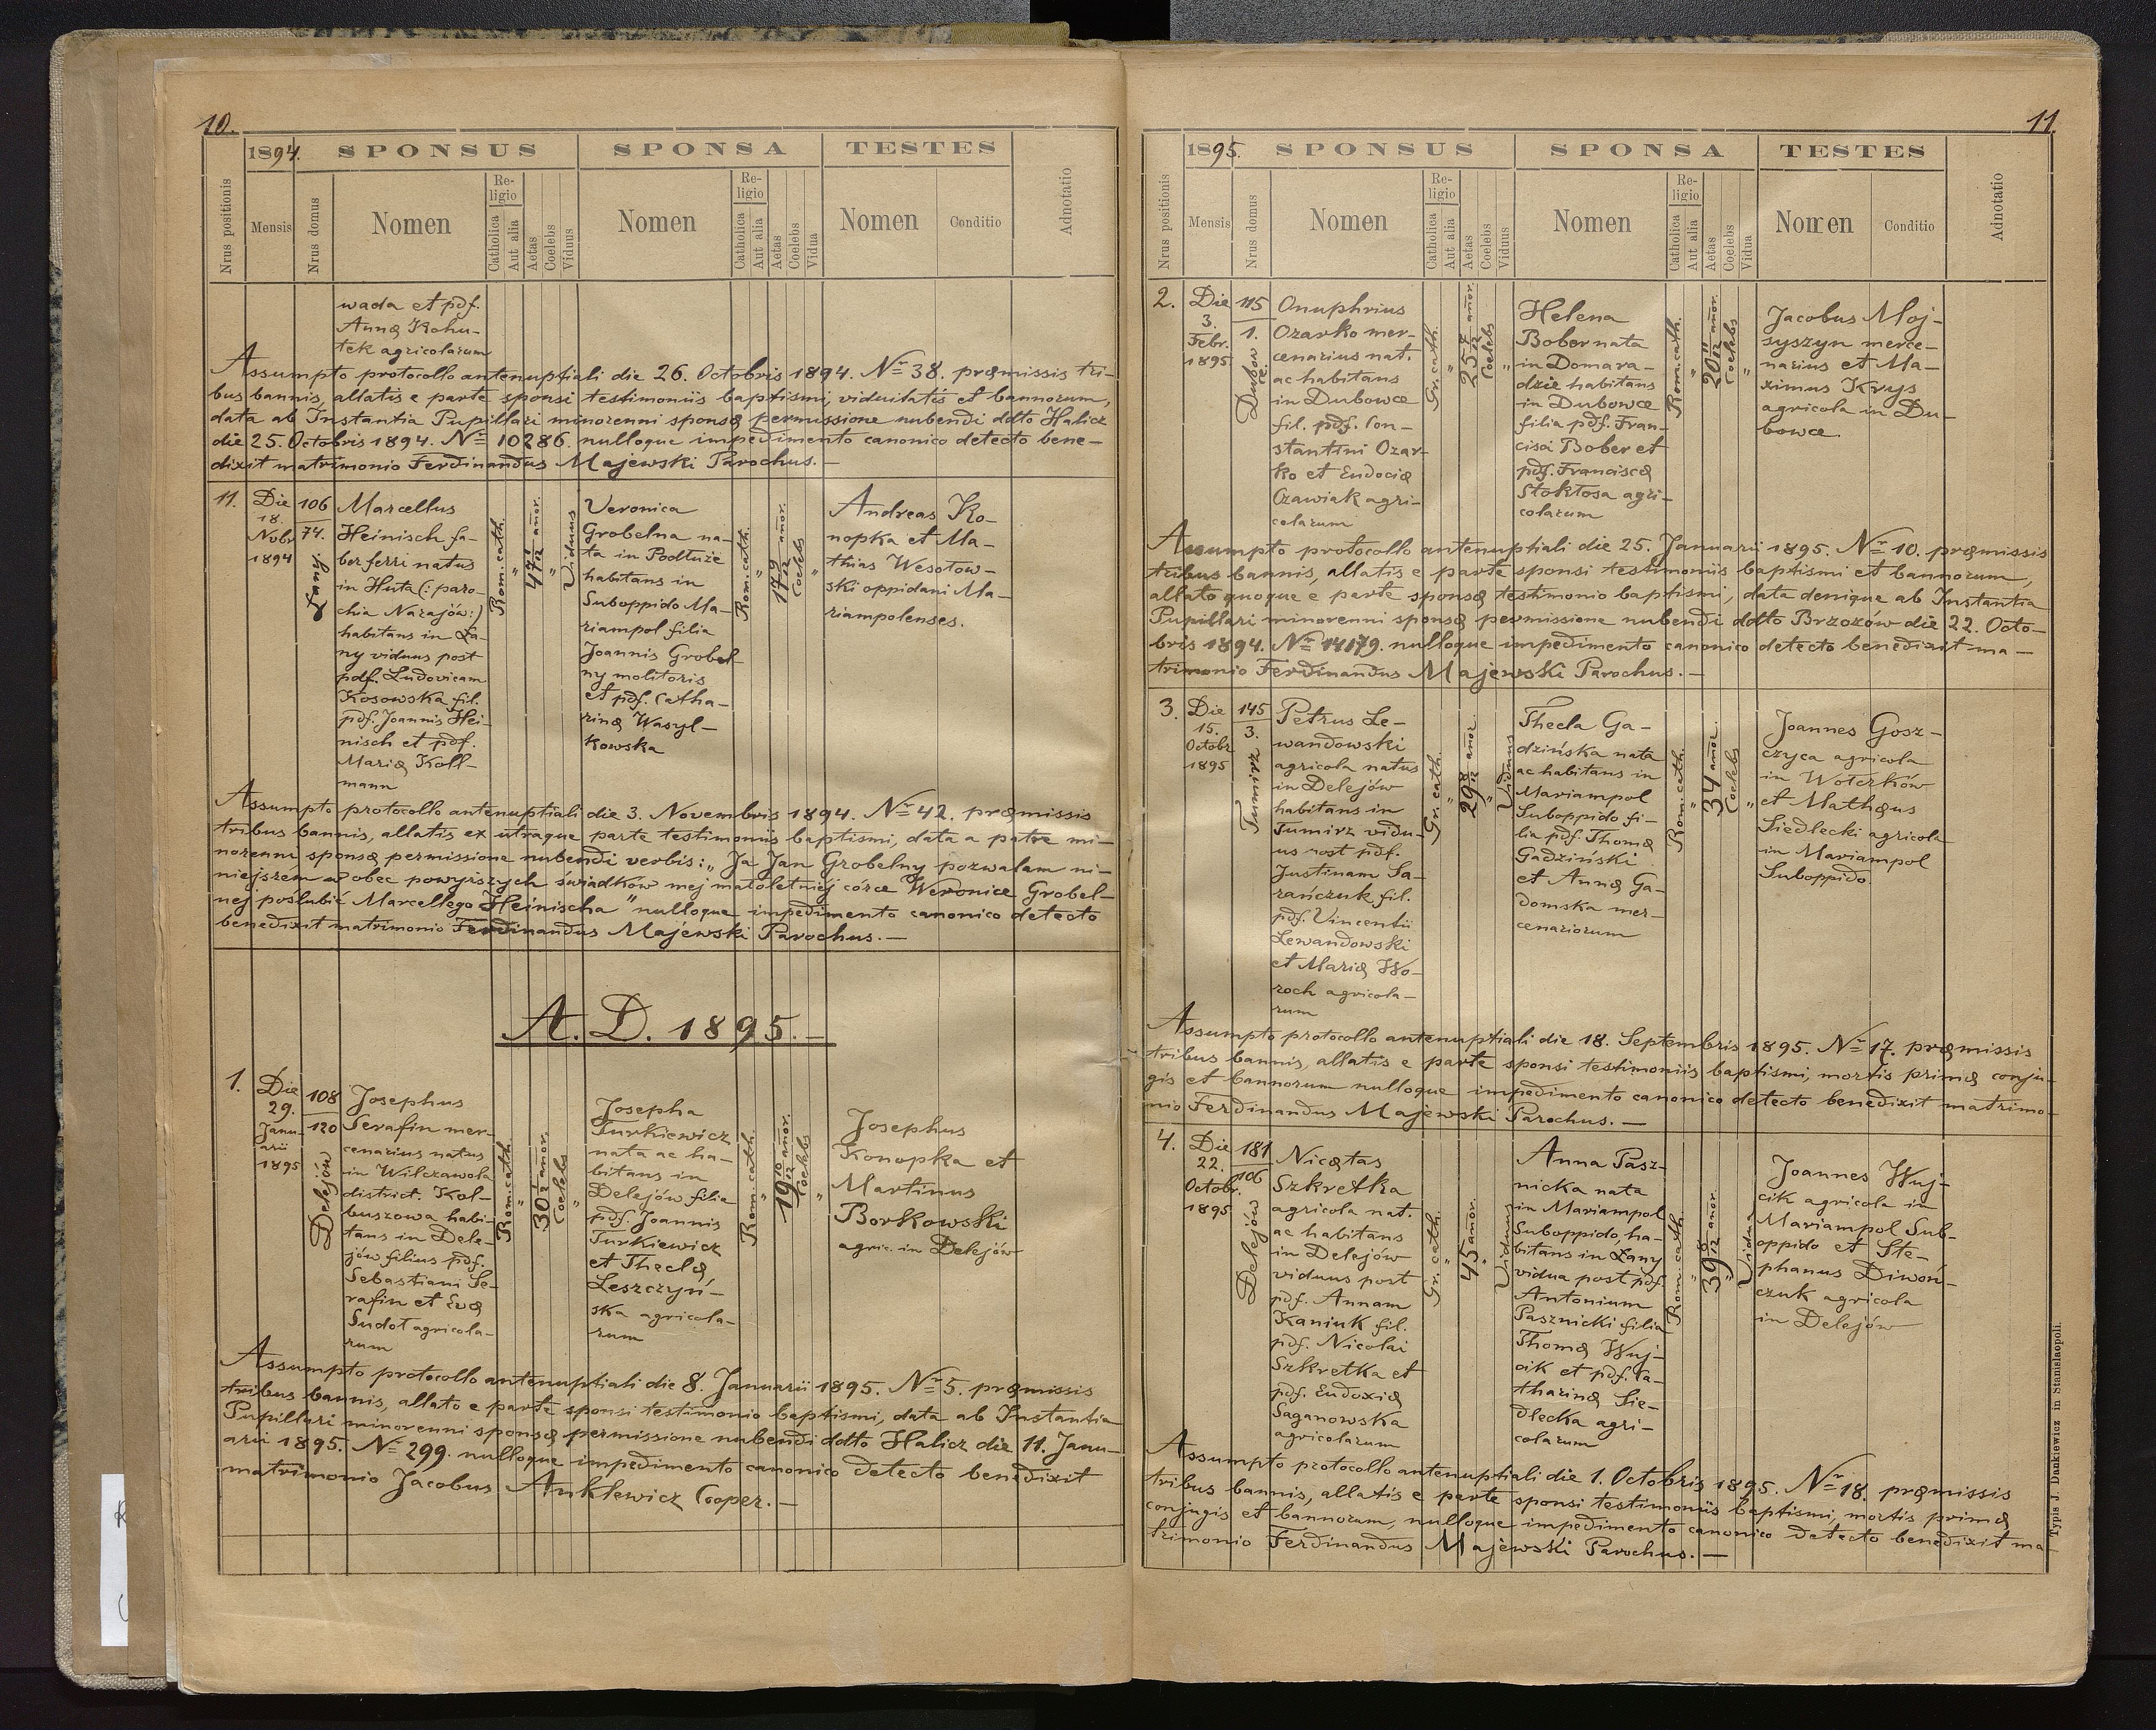 10.
1894. SPONSUS SPONSA TESTES
Nrus positionis
Mensis
Nrus domus
Nomen
Religio
Catholica
Aut alia
Aetas
Coelebs
Viduus
Nomen
Religio
Catholica
Aut alia
Aetas
Coelebs
Vidua
Nomen
Conditio
Adnotatio
wada et pdf.
Annæ Kohu-
tek agricolarum
Assumpto protocollo antenuptiali die 26. Octobris 1894. Nr 38. præmissis tri-
bus bannis, allatis e parte sponsi testimoniis baptismi, viduitatis et bannorum,
data ab Instantia Pupillari minorenni sponsæ permissione nubendi ddto Halicz
die 25. Octobris 1894. Nr 10286. nulloque impedimento canonico detecto bene-
dixit matrimonio Ferdinandus Majewski Parochus.—
11.
Die
18.
Nobr
1894
106
74.
Łany.
Marcellus
Heinisch fa-
ber ferri natus
in Huta (: paro-
chia Narajów:)
habitans in Ła-
ny viduus post
pdf. Ludovicam
Kosowska fil.
pdf. Joannis Hei-
nisch et pdf.
Mariæ Koll-
mann
Rom. cath.
"
47 1/12 añor.
"
Viduus
Veronica
Grobelna na-
ta in Podłuże
habitans in
Suboppido Ma-
riampol filia
Joannis Grobel-
ny molitoris
et pdf. Catha-
rinæ Wasyl-
kowska
Rom. cath.
"
17 9/12 añor.
Coelebs
"
Andreas Ko-
nopka et Ma-
thias Wesołow-
ski oppidani Ma-
riampolenses.
Assumpto protocollo antenuptiali die 3. Novembris 1894. Nr 42. præmissis
tribus bannis, allatis ex utraque parte testimoniis baptismi, data a patre mi-
norenni sponsæ permissione nubendi verbis: „Ja Jan Grobelny pozwalam ni-
niejszem w obec powyższych świadków mej małoletniej córce Weronice Grobel-
nej poślubić Marcellego Heinischa" nulloque impedimento canonico detecto
benedixit matrimonio Ferdinandus Majewski Parochus.—
A. D. 1895.—
1.
Die
29.
Janu-
arii
1895
108
120
Delejów
Josephus
Serafin mer-
cenarius natus
in Wilczawola
district. Kol-
buszowa habi-
tans in Dele-
jów filius pdf.
Sebastiani Se-
rafin et Evæ
Sudoł agricola-
rum
Rom. cath
"
30 1/2 añor.
Coelebs
"
Josepha
Turkiewicz
nata ac ha-
bitans in
Delejów filia
pdf. Joannis
Turkiewicz
et Theclæ
Leszczyń-
ska agricola-
rum
Rom. cath.
"
19 10/12 añor.
Coelebs
"
Josephus
Konopka et
Martinus
Borkowski
agric. in Delejów
Assumpto protocollo antenuptiali die 8. Januarii 1895. Nr 5. præmissis
tribus bannis, allato e parte sponsi testimonio baptismi, data ab Instantia
Pupillari minorenni sponsæ permissione nubendi ddto Halicz die 11. Janu-
arii 1895. Nr 299. nulloque impedimento canonico detecto benedixit
matrimonio Jacobus Anklewicz Cooper.—
11.
1895. SPONSUS SPONSA TESTES
Nrus positionis
Mensis
Nrus domus
Nomen
Religio
Catholica
Aut alia
Aetas
Coelebs
Viduus
Nomen
Religio
Catholica
Aut alia
Aetas
Coelebs
Vidua
Nomen
Conditio
Adnotatio
2.
Die
3.
Febr.
1895
115
1.
Dubow
ce.
Onuphrius
Ozarko mer-
cenarius nat.
ac habitans
in Dubowce
fil. pdf. Con-
stantini Ozar-
ko et Eudociæ
Czawiak agri-
colarum
Gr. cath.
"
añor.
Coelebs
"
Helena
Bober nata
in Domara-
dzie habitans
in Dubowce
filia pdf. Fran-
cisci Bober et
pdf. Franciscæ
Stokłosa agri-
colarum
Rom. cath.
"
20 11/12 añor.
Coelebs
"
Jacobus Moj-
syszyn merce-
narius et Ma-
ximus Krys
agricola in Du-
bowce.
Assumpto protocollo antenuptiali die 25. Januarii 1895. Nr 10. præmissis
tribus bannis, allatis e parte sponsi testimoniis baptismi et bannorum,
allato quoque e parte sponsæ testimonio baptismi, data denique ab Instantia
Pupillari minorenni sponsæ permissione nubendi ddto Brzozów die 22. Octo-
bris 1894. Nr 14179. nulloque impedimento canonico detecto benedixit ma-
trimonio Ferdinandus Majewski Parochus.—
3.
Die
15.
Octobr
1895
145
3.
Tumirz
Petrus Le-
wandowski
agricola natus
in Delejów
habitans in
Tumirz vidu-
us post pdf.
Justinam Sa-
rańczuk fil.
pdf. Vincentii
Lewandowski
et Mariæ Wo-
roch agricola-
rum
Gr. cath.
"
29 8/12 añor.
"
Viduus
Thecla Ga-
dzińska nata
ac habitans in
Mariampol
Suboppido fi-
lia pdf. Thomæ
Gadziński
et Annæ Ga-
domska mer-
cenariorum
Rom. cath.
"
34 añor.
Coelebs
"
Joannes Gosz-
czyca agricola
in Wołczków
et Mathæus
Siedlecki agricola
in Mariampol
Suboppido.
Assumpto protocollo antenuptiali die 18. Septembris 1895. Nr 17. præmissis
tribus bannis, allatis e parte sponsi testimoniis baptismi, mortis primæ conju-
gis et bannorum nulloque impedimento canonico detecto benedixit matrimo-
nio Ferdinandus Majewski Parochus.—
4.
Die
22.
Octobr.
1895
181
106
Delejów
Nicetas
Szkretka
agricola nat.
ac habitans
in Delejów
viduus post
pdf. Annam
Kaniuk fil.
pdf. Nicolai
Szkretka et
pdf. Eudoxiæ
Saganowska
agricolarum
Gr. cath.
"
45 añor.
"
Viduus
Anna Pasz-
nicka nata
in Mariampol
Suboppido, ha-
bitans in Łany
vidua post pdf.
Antonium
Pasznicki filia
Thomæ Wuj-
cik et pdf. Ca-
tharinæ Sie-
dlecka agri-
colarum
Rom. cath.
"
39 8/12 añor.
"
Vidua
Joannes Wuj-
cik agricola in
Mariampol Sub-
oppido et Ste-
phanus Diwoń-
czuk agricola
in Delejów
Assumpto protocollo antenuptiali die 1. Octobris 1895. Nr 18. præmissis
tribus bannis, allatis e parte sponsi testimoniis baptismi, mortis primæ
conjugis et bannorum, nulloque impedimento canonico detecto benedixit ma
trimonio Ferdinandus Majewski Parochus.—
Typis J. Dankiewicz in Stanislaopoli.